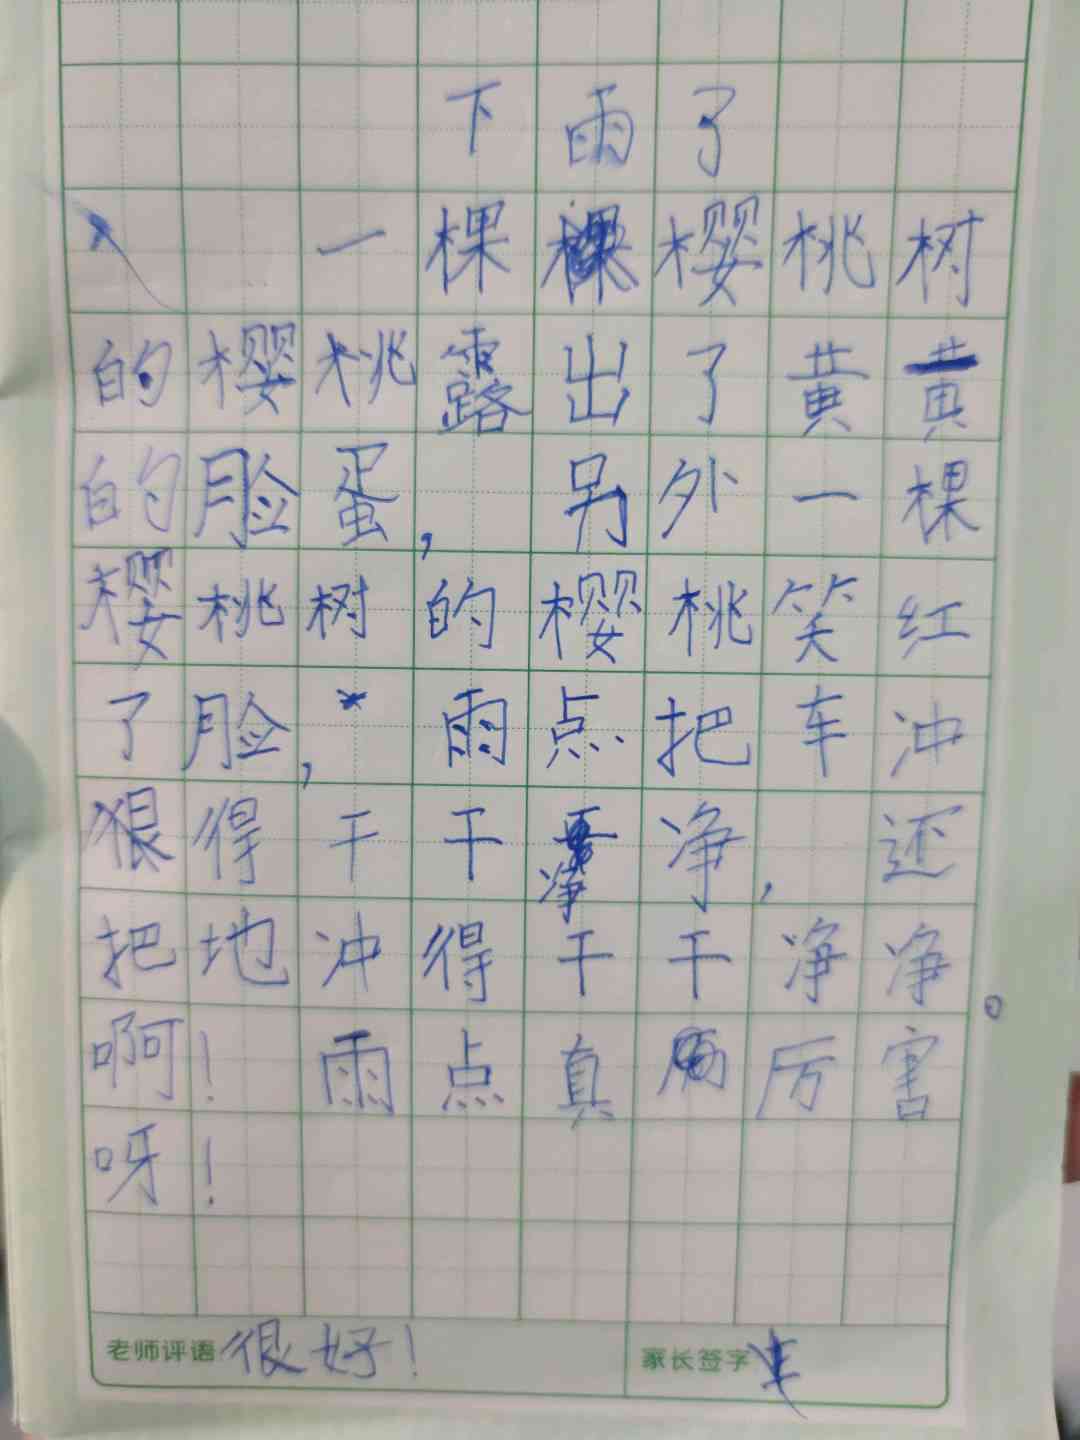 下雨了
一棵樱桃树
的樱桃露出了黄黄
的脸蛋，另外一棵
樱桃树的樱桃笑红
了脸，雨点把车冲
狠得干干净净，还
把地冲得干干净净。
啊！雨点真厉害
呀！
老师评语 很好！ 家长签字